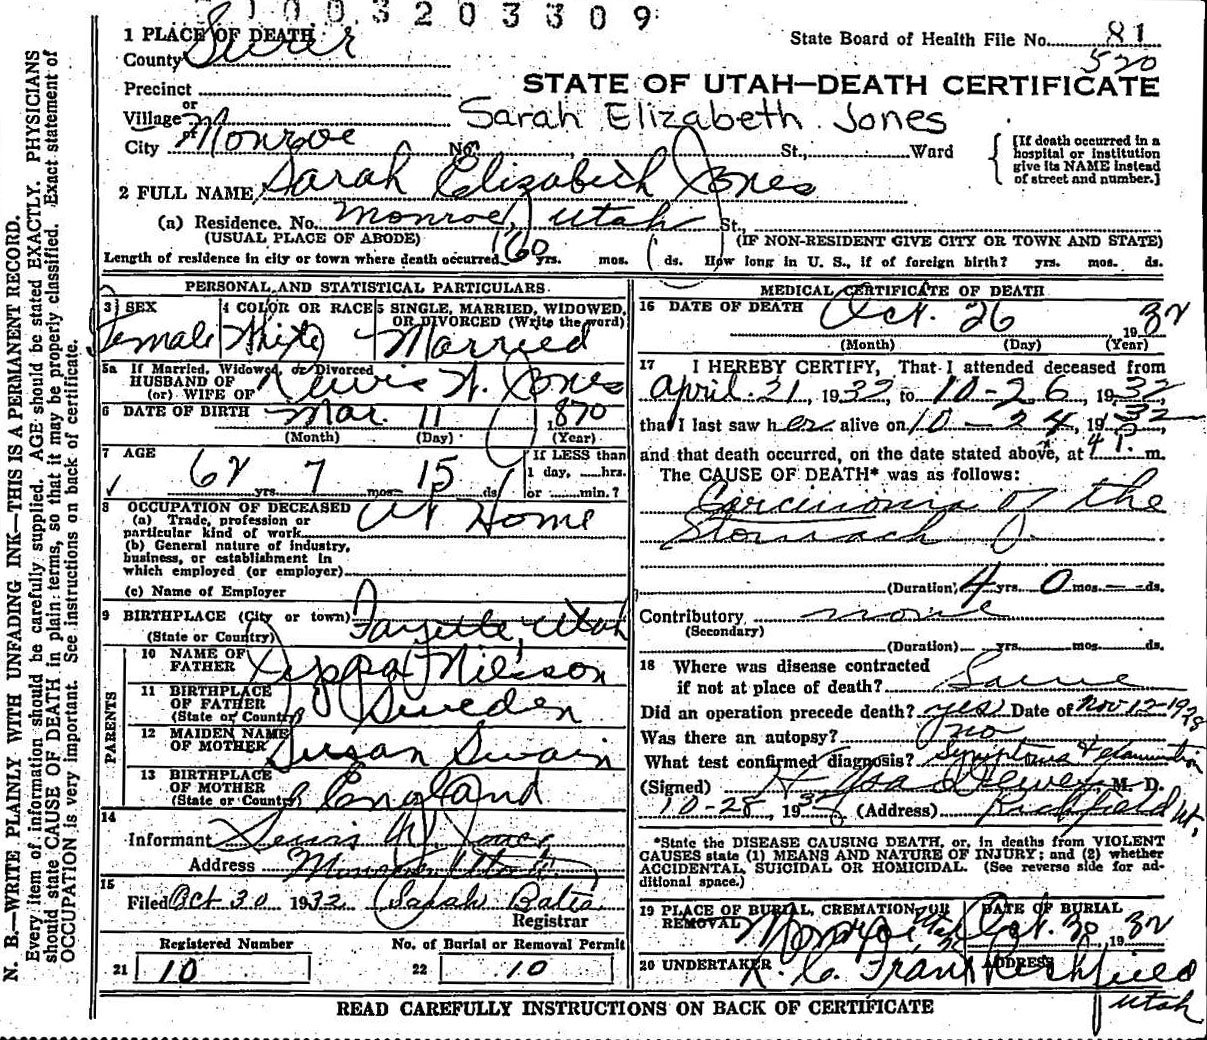 1003203309
1 PLACE OF DEATH
County Sevier
State Board of Health File No. 81
520
Precinct
STATE OF UTAH—DEATH CERTIFICATE
or
Village
Sarah Elizabeth Jones
or
City Monroe No. St., Ward
[If death occurred in a hospital or institution give its NAME instead of street and number.]
2 FULL NAME Sarah Elizabeth Jones
(a) Residence. No. Monroe, Utah St.,
(USUAL PLACE OF ABODE) (IF NON-RESIDENT GIVE CITY OR TOWN AND STATE)
Length of residence in city or town where death occurred 60 yrs. mos. ds. How long in U. S., if of foreign birth? yrs. mos. ds.
PERSONAL AND STATISTICAL PARTICULARS
3 SEX
Female
4 COLOR OR RACE
White
5 SINGLE, MARRIED, WIDOWED, OR DIVORCED (Write the word)
Married
5a If Married, Widowed, or Divorced
HUSBAND OF
(or) WIFE OF Lewis W. Jones
6 DATE OF BIRTH Mar. 11 1870
(Month) (Day) (Year)
7 AGE
62 yrs. 7 mos. 15 ds.
If LESS than
1 day, hrs.
or min.?
8 OCCUPATION OF DECEASED
(a) Trade, profession or
particular kind of work At Home
(b) General nature of industry,
business, or establishment in
which employed (or employer)
(c) Name of Employer
9 BIRTHPLACE (City or town) Fayette, Utah
(State or Country)
PARENTS
10 NAME OF
FATHER Jeppa Nilsson
11 BIRTHPLACE
OF FATHER
(State or Country) Sweden
12 MAIDEN NAME
OF MOTHER Susan Swain
13 BIRTHPLACE
OF MOTHER
(State or Country) England
14
Informant Lewis W. Jones
Address Monroe Utah
15
Filed Oct 30 1932 Sarah
Registrar
Registered Number
21 10
No. of Burial or Removal Permit
22 10
MEDICAL CERTIFICATE OF DEATH
16 DATE OF DEATH Oct. 26 1932
(Month) (Day) (Year)
17 I HEREBY CERTIFY, That I attended deceased from
April 21 1932, to 10-26, 1932
that I last saw her alive on 10-24, 1932
and that death occurred, on the date stated above, at 4 P. m.
The CAUSE OF DEATH* was as follows:
Carcinoma of the
Stomach
(Duration) 4 yrs. 0 mos. — ds.
Contributory none
(Secondary)
(Duration) yrs. mos. ds.
18 Where was disease contracted
if not at place of death? Same
Did an operation precede death? yes Date of Nov 12-1928
Was there an autopsy? no
What test confirmed diagnosis? Symptoms &
(Signed) M. D.
10-28, 1932 (Address) Richfield Ut.
*State the DISEASE CAUSING DEATH, or, in deaths from VIOLENT
CAUSES state (1) MEANS AND NATURE OF INJURY; and (2) whether
ACCIDENTAL, SUICIDAL OR HOMICIDAL. (See reverse side for ad-
ditional space.)
19 PLACE OF BURIAL, CREMATION, OR
REMOVAL Monroe Utah
DATE OF BURIAL
Oct. 30, 1932
20 UNDERTAKER
ADDRESS
Richfield
Utah
READ CAREFULLY INSTRUCTIONS ON BACK OF CERTIFICATE
N. B.—WRITE PLAINLY WITH UNFADING INK—THIS IS A PERMANENT RECORD.
Every item of information should be carefully supplied. AGE should be stated EXACTLY. PHYSICIANS
should state CAUSE OF DEATH in plain terms, so that it may be properly classified. Exact statement of
OCCUPATION is very important. See instructions on back of certificate.